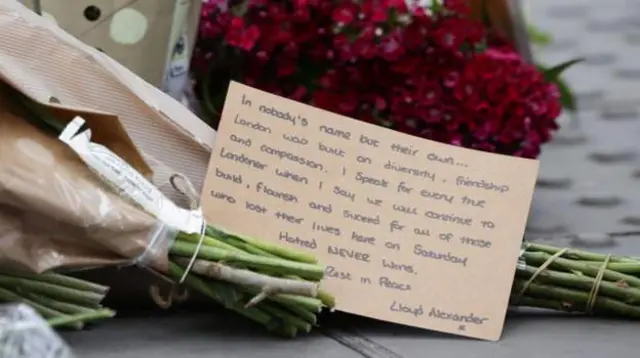 In nobody's name but their own...
London was built on diversity, friendship
and compassion. I speak for every true
Londoner when I say we will continue to
build, flourish and succeed for all of those
who lost their lives here on Saturday
Hatred NEVER wins.
Rest in Peace
Lloyd Alexander
x